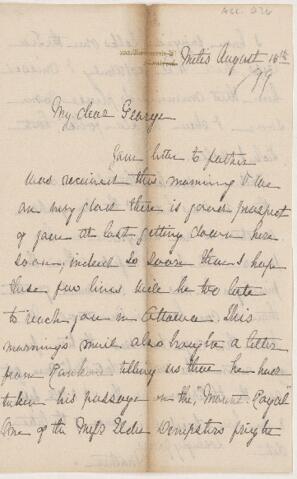 Acc. 526
Metis August 15th
/99
My dear George
Your letter to father
was received this morning & we
are very glad there is good prospect
of your at last getting down here
soon, indeed so soon that I hope
these few lines will be too late
to reach you in Ottawa. This
morning's mail also brought a letter
from telling us that he had
taken his passage on the "Mount Royal"
one of the Messrs Elder Dempsters freight